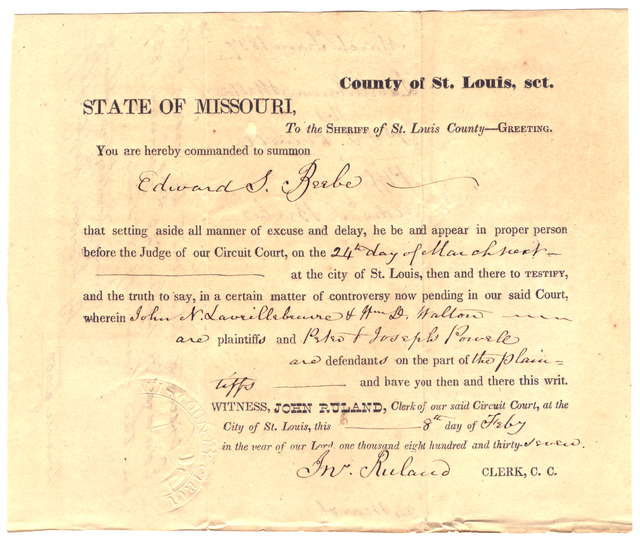 County of St. Louis, sct.
STATE OF MISSOURI,
To the SHERIFF of St. Louis County—GREETING.
You are hereby commanded to summon
Edward S. Beebe
that setting aside all manner of excuse and delay, he be and appear in proper person
before the Judge of our Circuit Court, on the 24th day of March next
at the city of St. Louis, then and there to TESTIFY,
and the truth to say, in a certain matter of controversy now pending in our said Court,
wherein John N & Wm D. Walton
are plaintiffs and Peter & Joseph Powell
are defendants on the part of the plain=
tiffs and have you then and there this writ.
WITNESS, JOHN RULAND, Clerk of our said Circuit Court, at the
City of St. Louis, this 8th day of Feby
in the year of our Lord, one thousand eight hundred and thirty-seven.
Jno. Ruland CLERK, C. C.